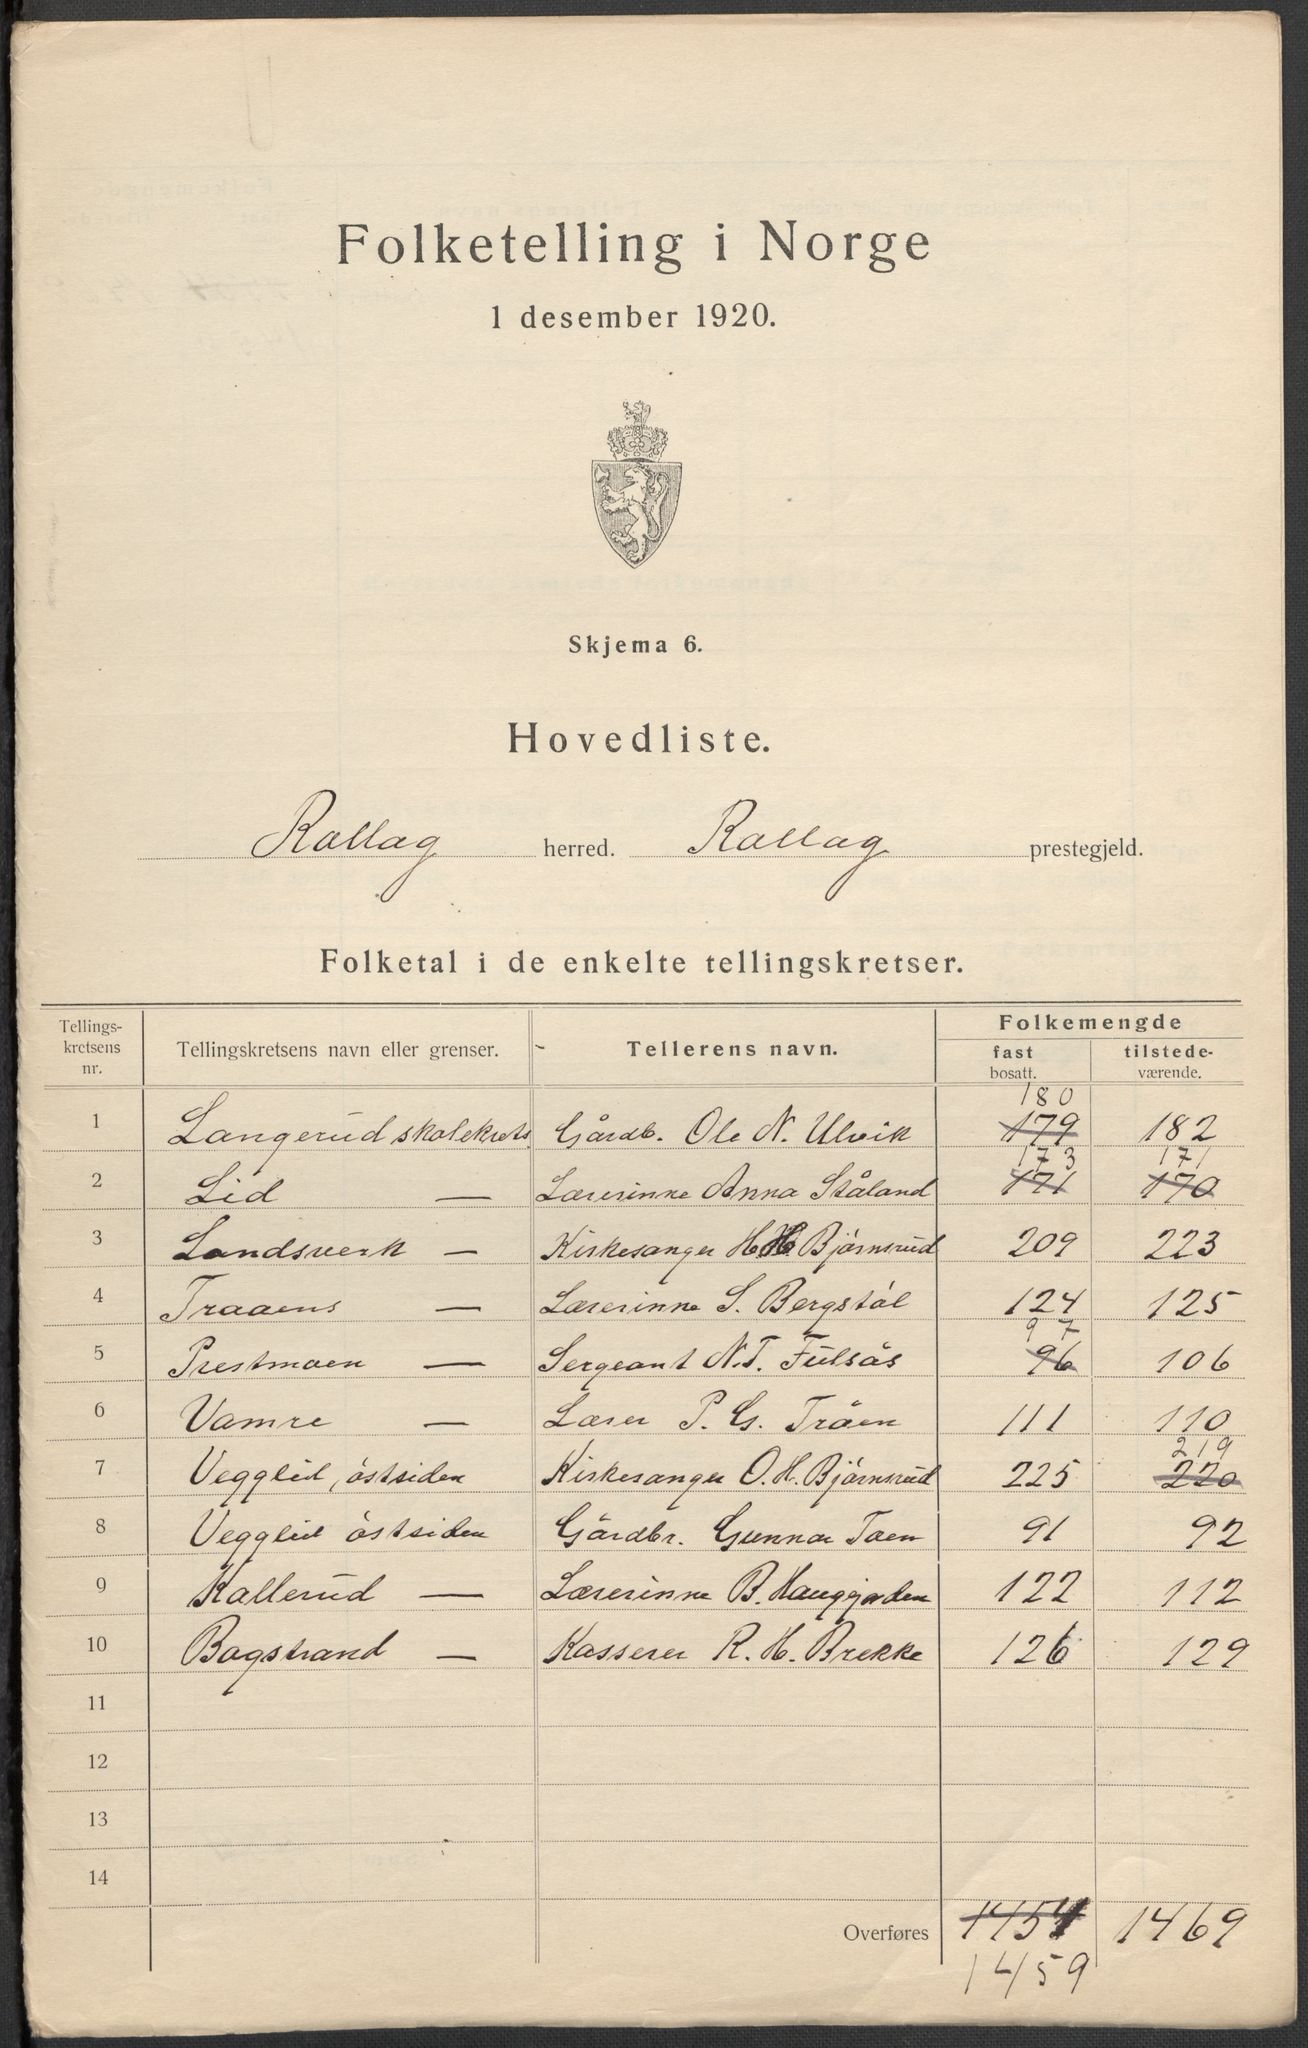 Folketelling i Norge
1 desember 1920.
Skjema 6.
Hovedliste.
Rollag herred. Rollag prestegjeld.
Folketal i de enkelte tellingskretser.
Tellings-kretsens nr. Tellingskretsens navn eller grenser. Tellerens navn. Folkemengde
fast bosatt. tilstede-værende.
180
1 Langerud skolekrets Gårdb. Ole N. Ulvik 179 182
173 171
2 Lid — Lærerinne Anna Ståland 171 170
3 Landsverk — Kirkesanger H. H. Bjørnsrud 209 223
4 Traaens — Lærerinne S. Bergstøl 124 125
97
5 Prestmoen — Sergeant N.T. Fulsås 96 106
6 Vamre — Lærer P. G. Tråen 111 110
219
7 Vegglid, östsiden Kirkesanger O. H. Bjørnsrud 225 220
8 Vegglid östsiden Gårdbr. Gunnar Toen 91 92
9 Kallerud — Lærerinne B. Haugjorden 122 112
10 Bogstrand — Kasserer R. H. Brekke 126 129
11
12
13
14
Overføres 1454 1469
1459